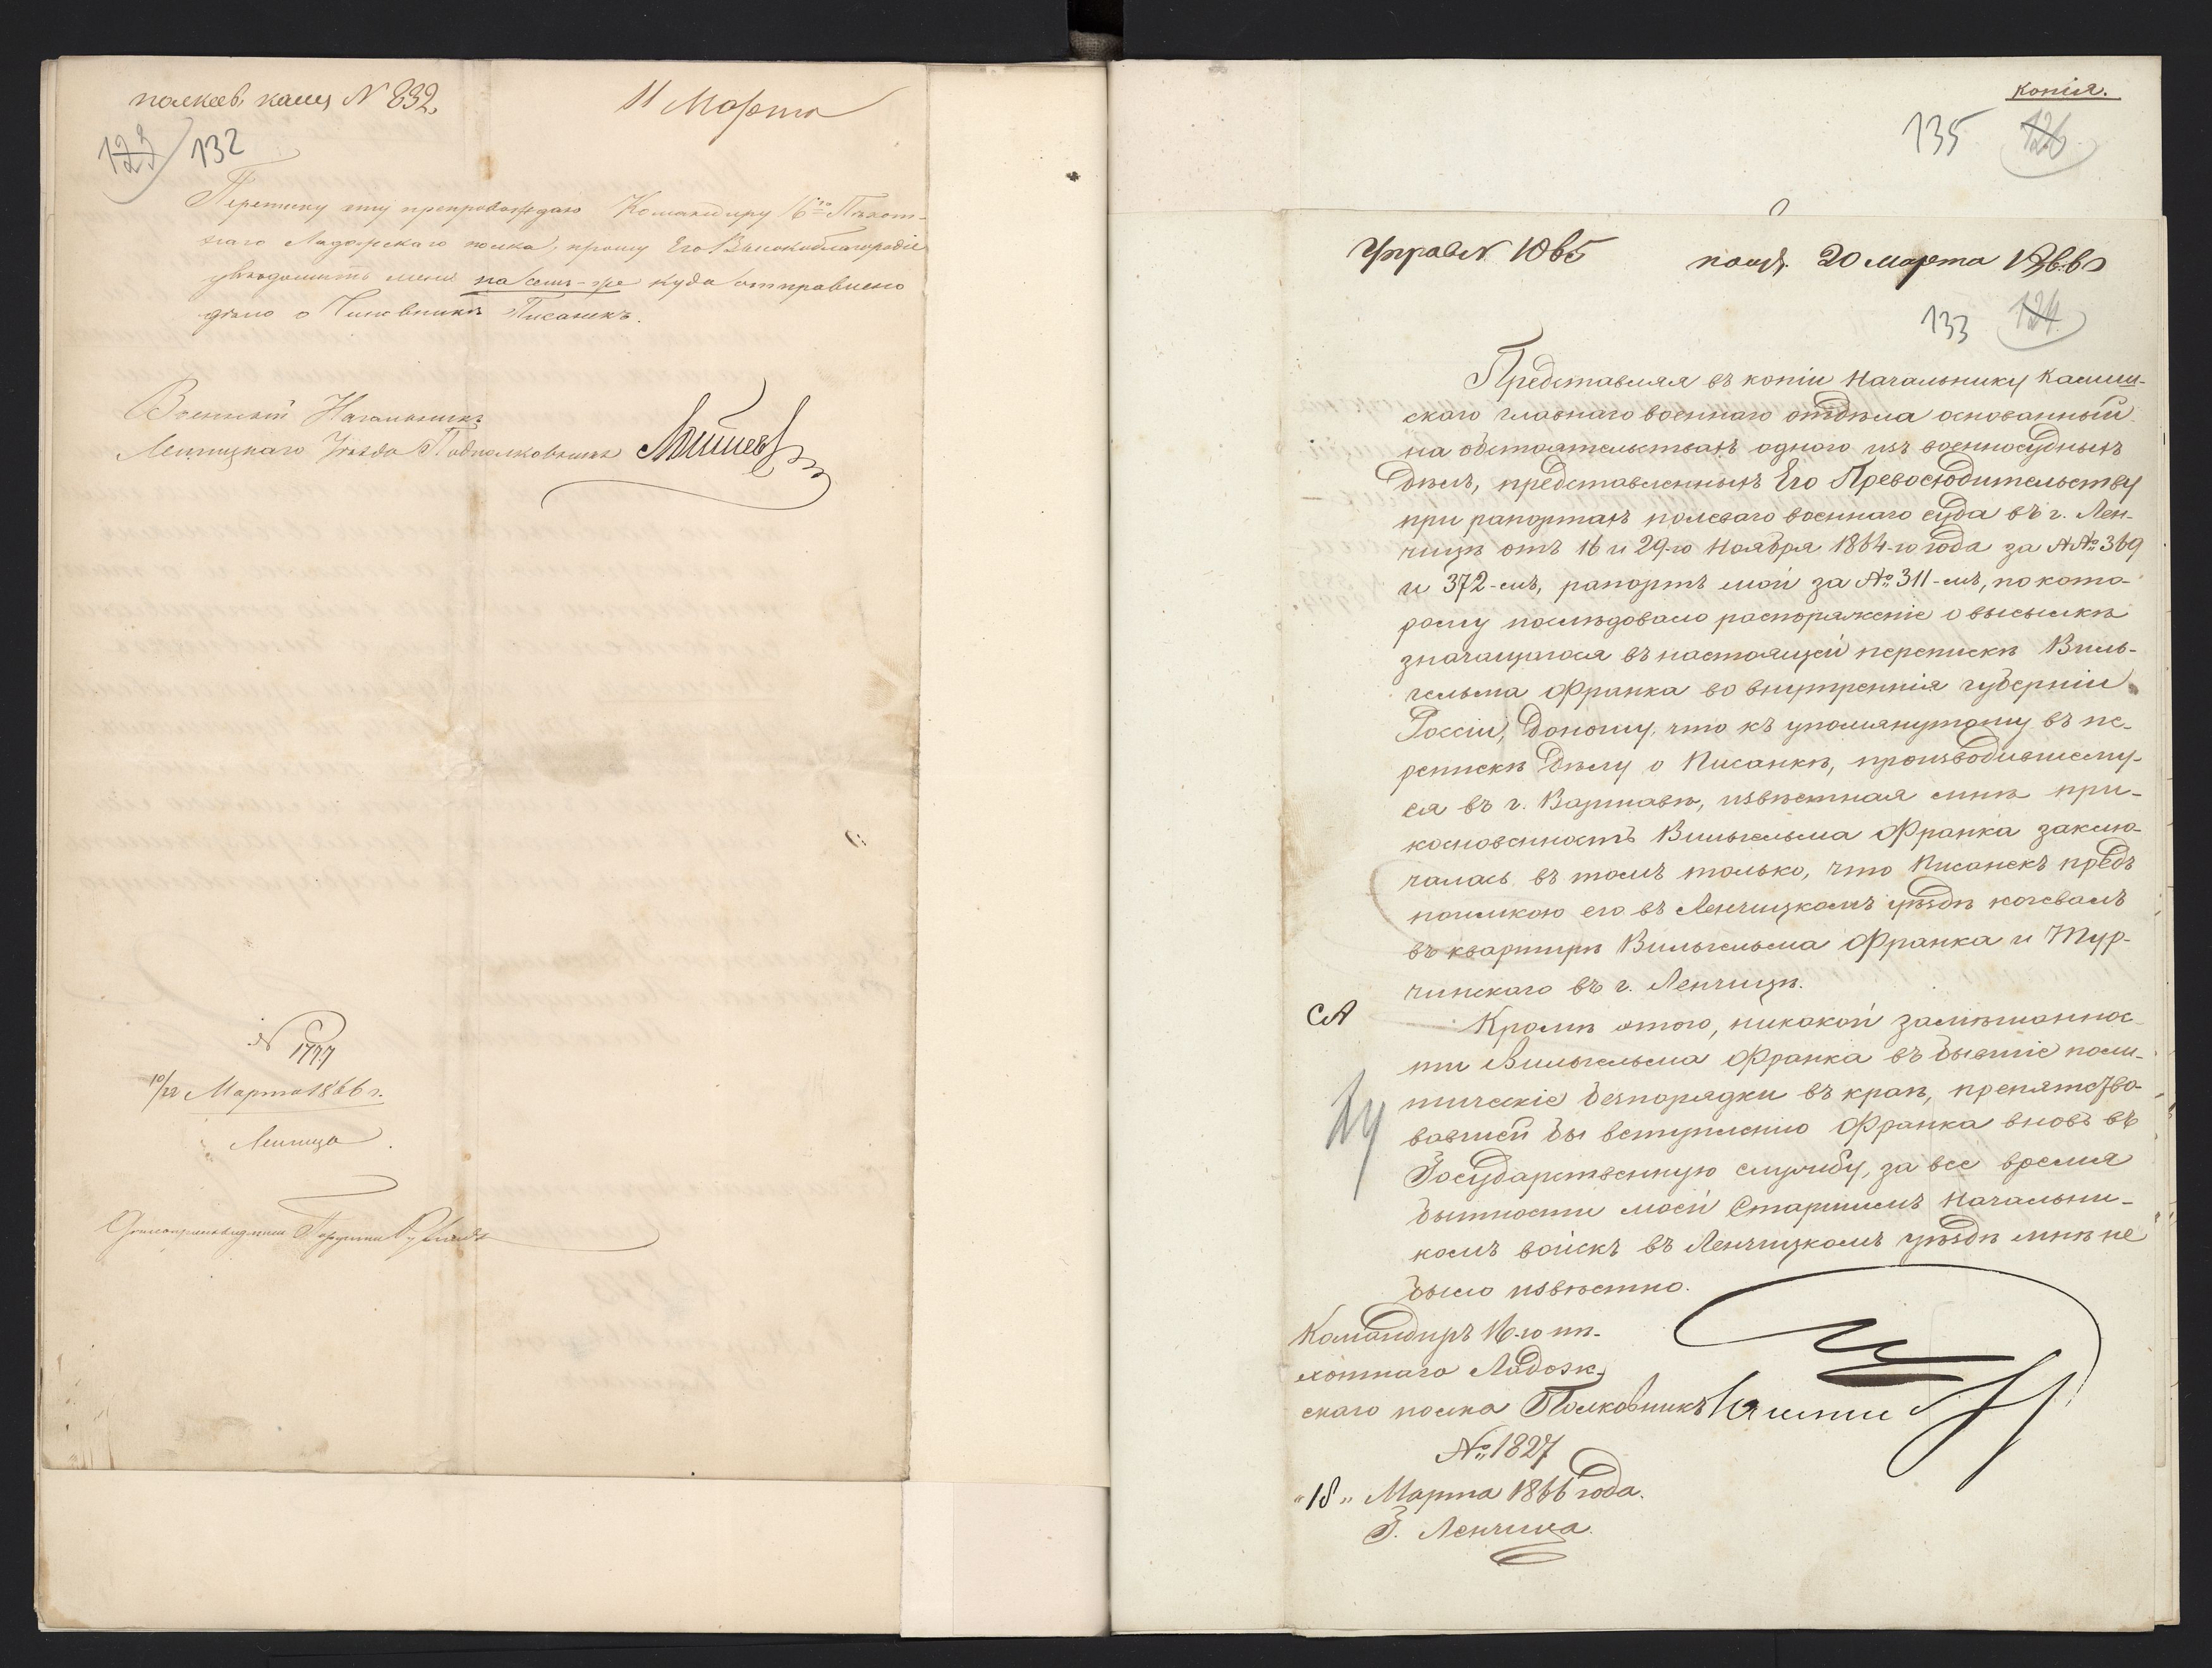 полков. канц № 832.
11 Марта
123 132
Переписку эту препровождаю Командиру 16го Пѣхот-
наго Ладожскаго полка, прошу Его Высокоблагородіе
увѣдомить меня на семъ-же куда отправлено
дѣло о Чиновникѣ Писанекъ.
Военный Начальникъ
Ленчицкаго Уѣзда Подполковникъ
№ 1777
10/22 Марта 1866 г.
Ленчица
Поручикъ
копія.
135 126
Управ № 1865
получ. 20 марта 1866
133 124
Представляя въ копіи Начальнику Калиш-
скаго главнаго военнаго отдѣла основанный
на обстоятельствахъ одного изъ военносудныхъ
дѣлъ, представленныхъ Его Превосходительству
при рапортахъ полеваго военнаго суда въ г. Лен-
чицѣ отъ 16 и 29-го Ноября 1864-го года за №№ 369
и 372-мъ, рапортъ мой за № 311-мъ, по кото-
рому послѣдовало распоряженіе о высылкѣ
значащагося въ настоящей перепискѣ Виль-
гельма Франка во внутреннія губерніи
Россіи, доношу, что къ упомянутому въ пе-
репискѣ дѣлу о Писанкѣ, производившему-
ся въ г. Варшавѣ, извѣстная мнѣ при-
косновенность Вильгельма Франка заклю-
чалась въ томъ только, что Писанекъ предъ
поимкою его въ Ленчицкомъ уѣздѣ ночевалъ
въ квартирѣ Вильгельма Франка и Тур-
чинскаго въ г. Ленчицѣ.
Кромѣ этого, никакой замѣшаннос-
ти Вильгельма Франка въ бывшіе поли-
тическіе безпорядки въ краѣ, препятство-
вавшей бы вступленію Франка вновь въ
Государственную службу, за все время
бытности моей Старшимъ Начальни-
комъ войскъ въ Ленчицкомъ уѣздѣ мнѣ не
было извѣстно.
Командиръ 16-го пѣ-
хотнаго Ладожс-
скаго полка Полковникъ
№ 1827
"18" Марта 1866 года.
Г. Ленчица.